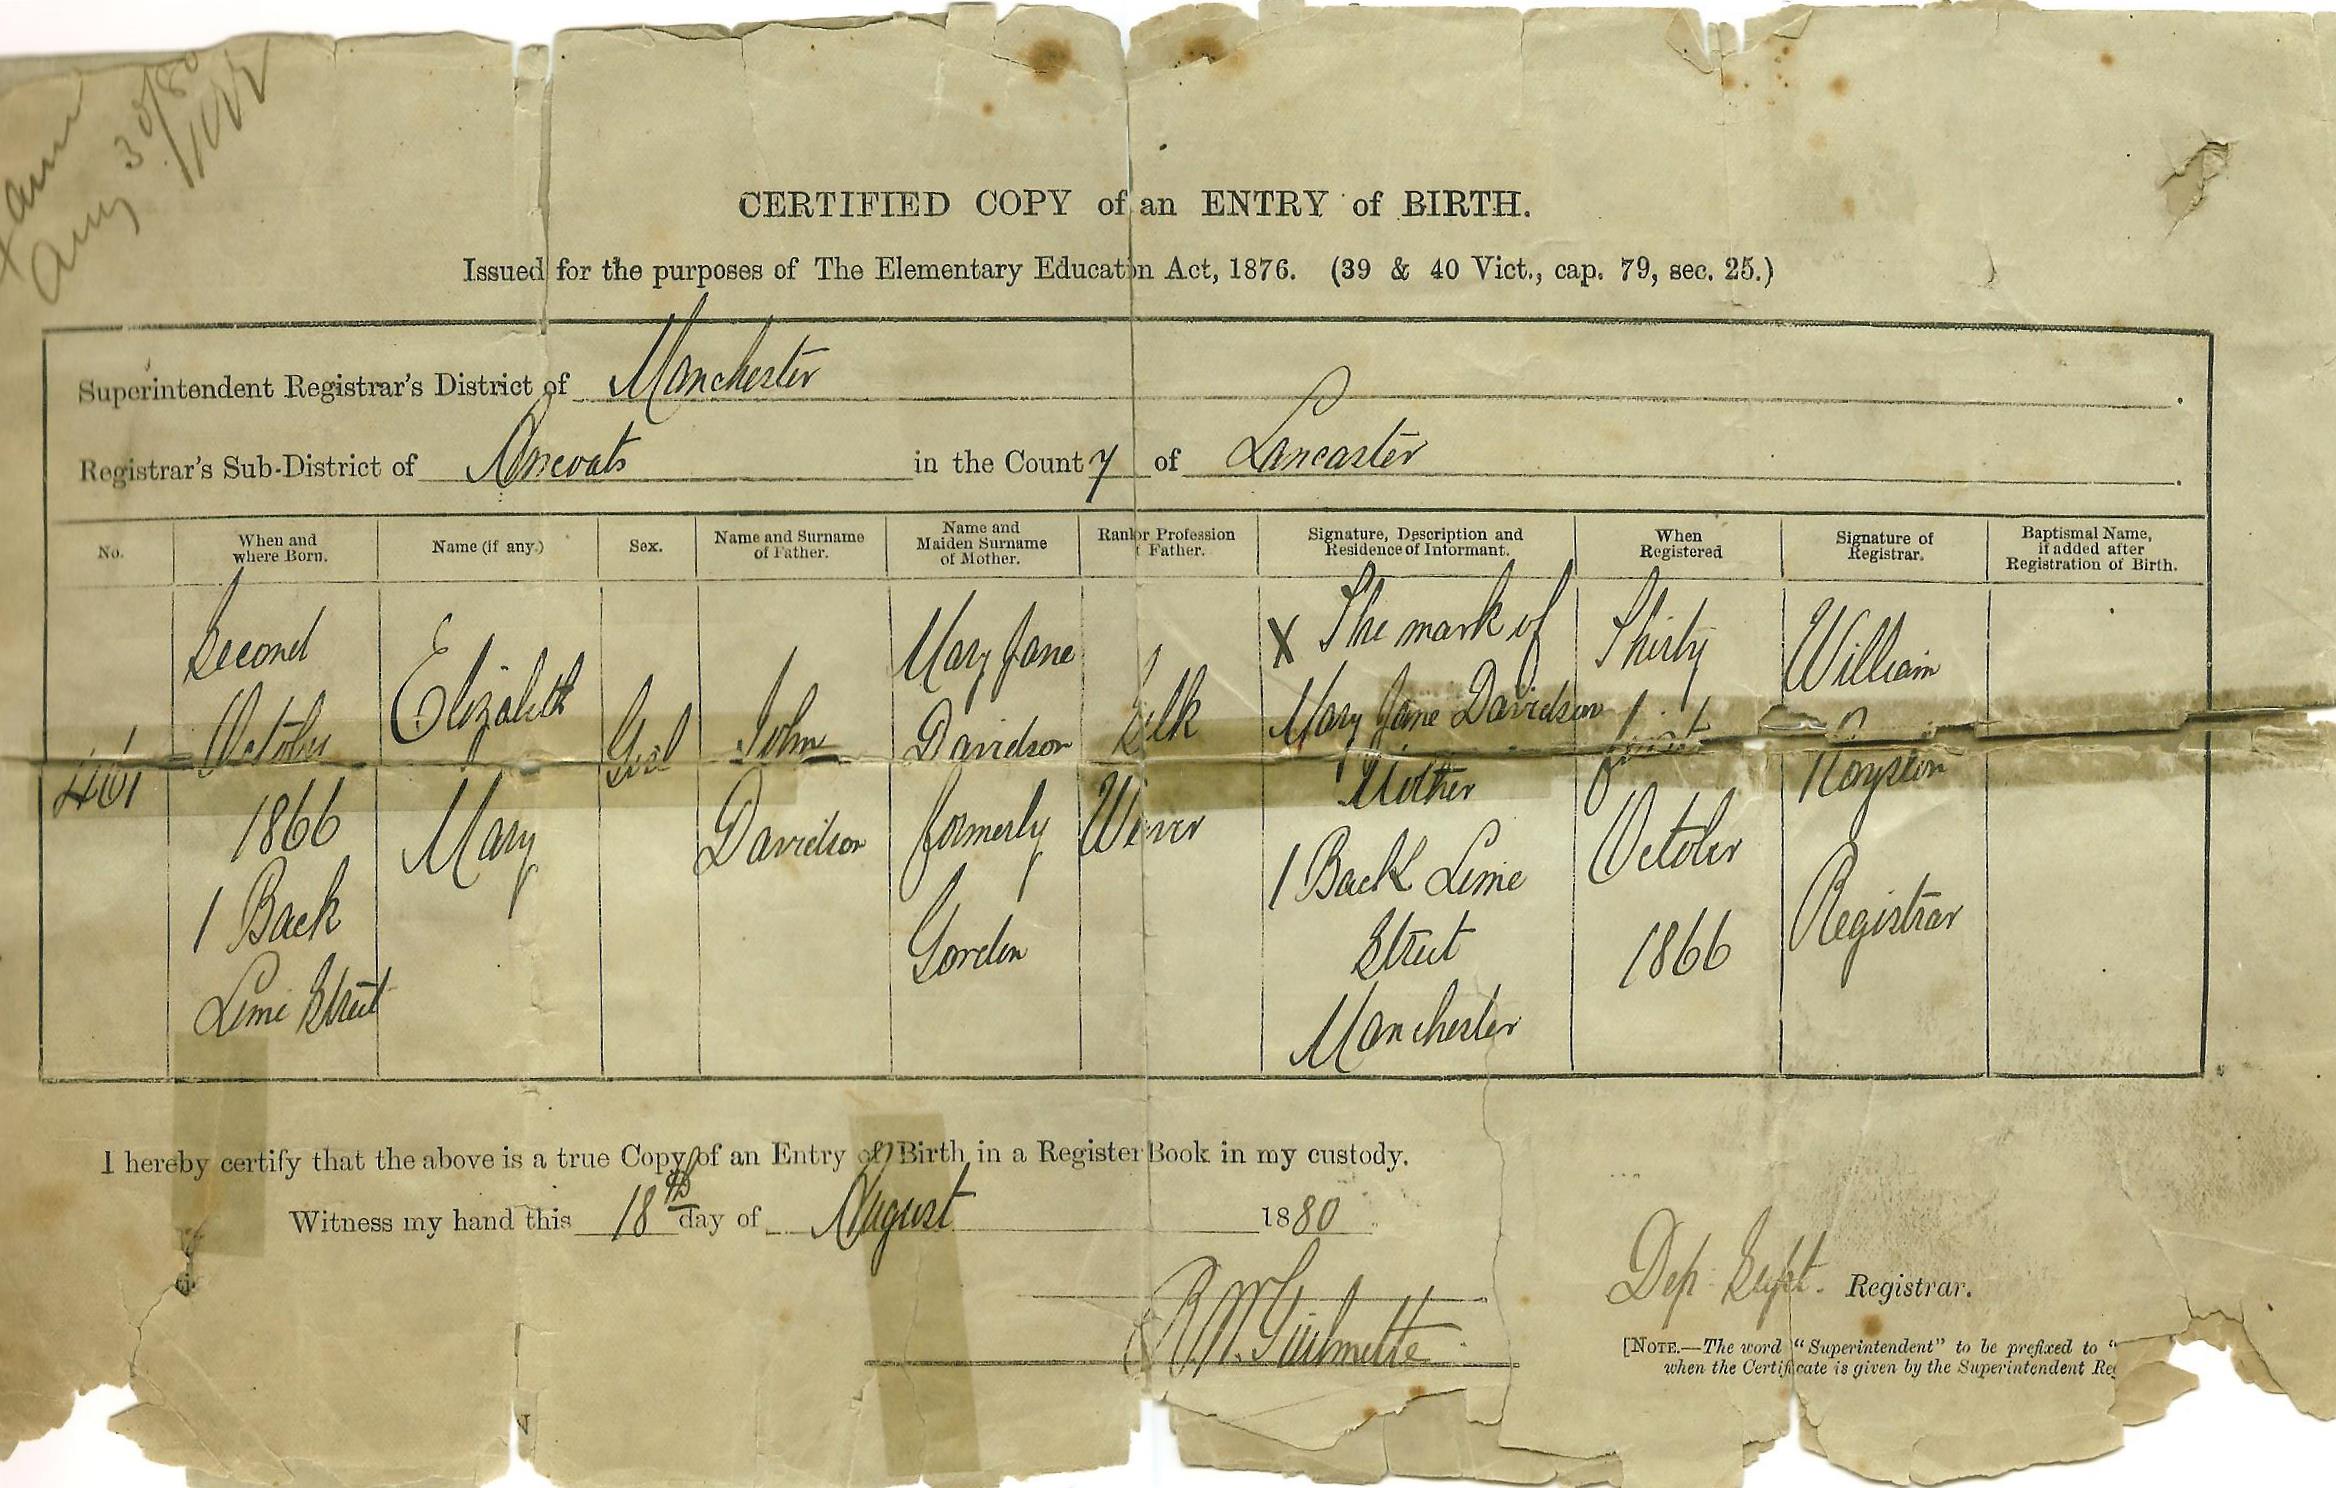 Aug 30/80
CERTIFIED COPY of an ENTRY of BIRTH.
Issued for the purposes of The Elementary Education Act, 1876. (39 & 40 Vict., cap. 79, sec. 25.)
Superintendent Registrar's District of Manchester
Registrar's Sub-District of Ancoats in the County of Lancaster
No.
When and
where Born.
Name (if any.)
Sex.
Name and Surname
of Father.
Name and
Maiden Surname
of Mother.
Rank or Profession
Father.
Signature, Description and
Residence of Informant.
When
Registered
Signature of
Registrar.
Baptismal Name,
if added after
Registration of Birth.
461
Second
October
1866
1 Back
Lime Street
Elizabeth
Mary
Girl
John
Davidson
Mary Jane
Davidson
formerly
Gordon
Silk
Weaver
X The mark of
Mary Jane Davidson
Mother
1 Back Lime
Street
Manchester
Thirty
first
October
1866
William
Royston
Registrar
I hereby certify that the above is a true Copy of an Entry of Birth in a Register Book in my custody.
Witness my hand this 18th day of August 1880
Dep Supt. Registrar.
[NOTE.—The word "Superintendent" to be prefixed to "
when the Certificate is given by the Superintendent Reg